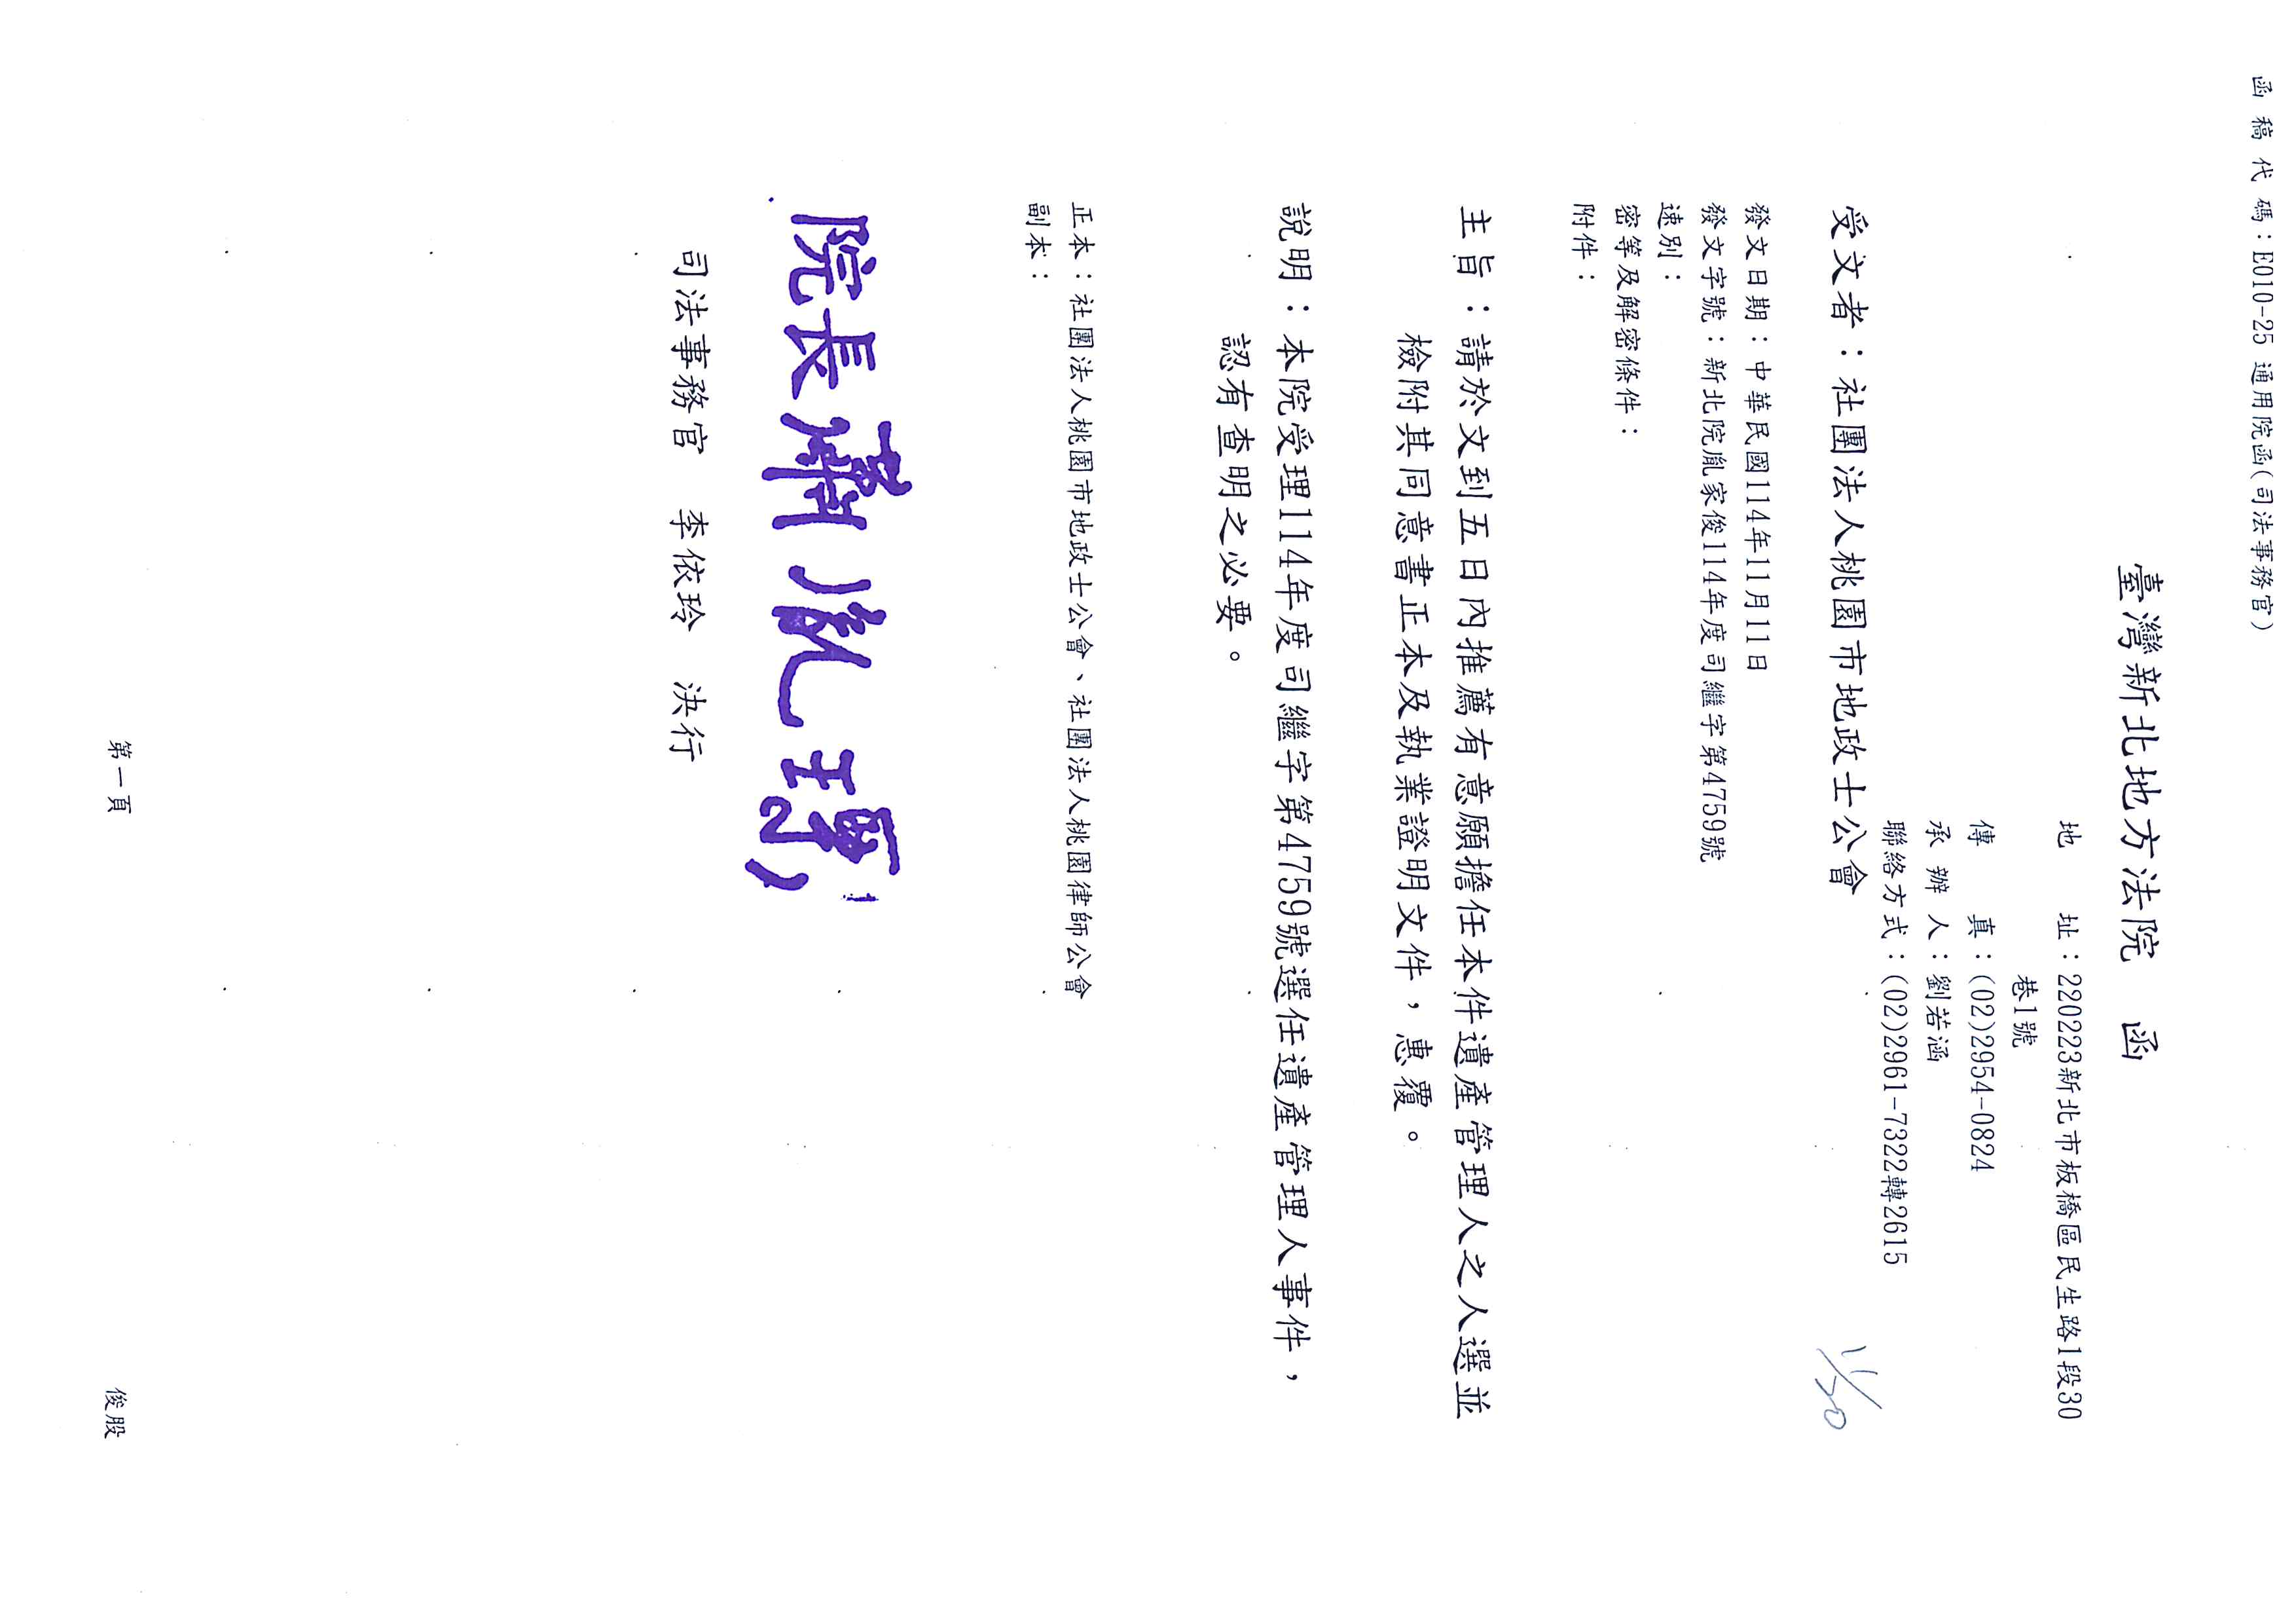 函稿代碼：E010-25 通用院函(司法事務官)
臺灣新北地方法院　函
地　　址：220223新北市板橋區民生路1段30
巷1號
傳　　真：(02)2954-0824
承 辦 人：劉若涵
聯絡方式：(02)2961-7322轉2615
11/20
受文者：社團法人桃園市地政士公會
發文日期：中華民國114年11月11日
發文字號：新北院胤家俊114年度司繼字第4759號
速別：
密等及解密條件：
附件：
主旨：請於文到五日內推薦有意願擔任本件遺產管理人之人選並
檢附其同意書正本及執業證明文件，惠覆。
說明：本院受理114年度司繼字第4759號選任遺產管理人事件，
認有查明之必要。
正本：社團法人桃園市地政士公會、社團法人桃園律師公會
副本：
院長
司法事務官　李依玲　決行
第一頁
俊股